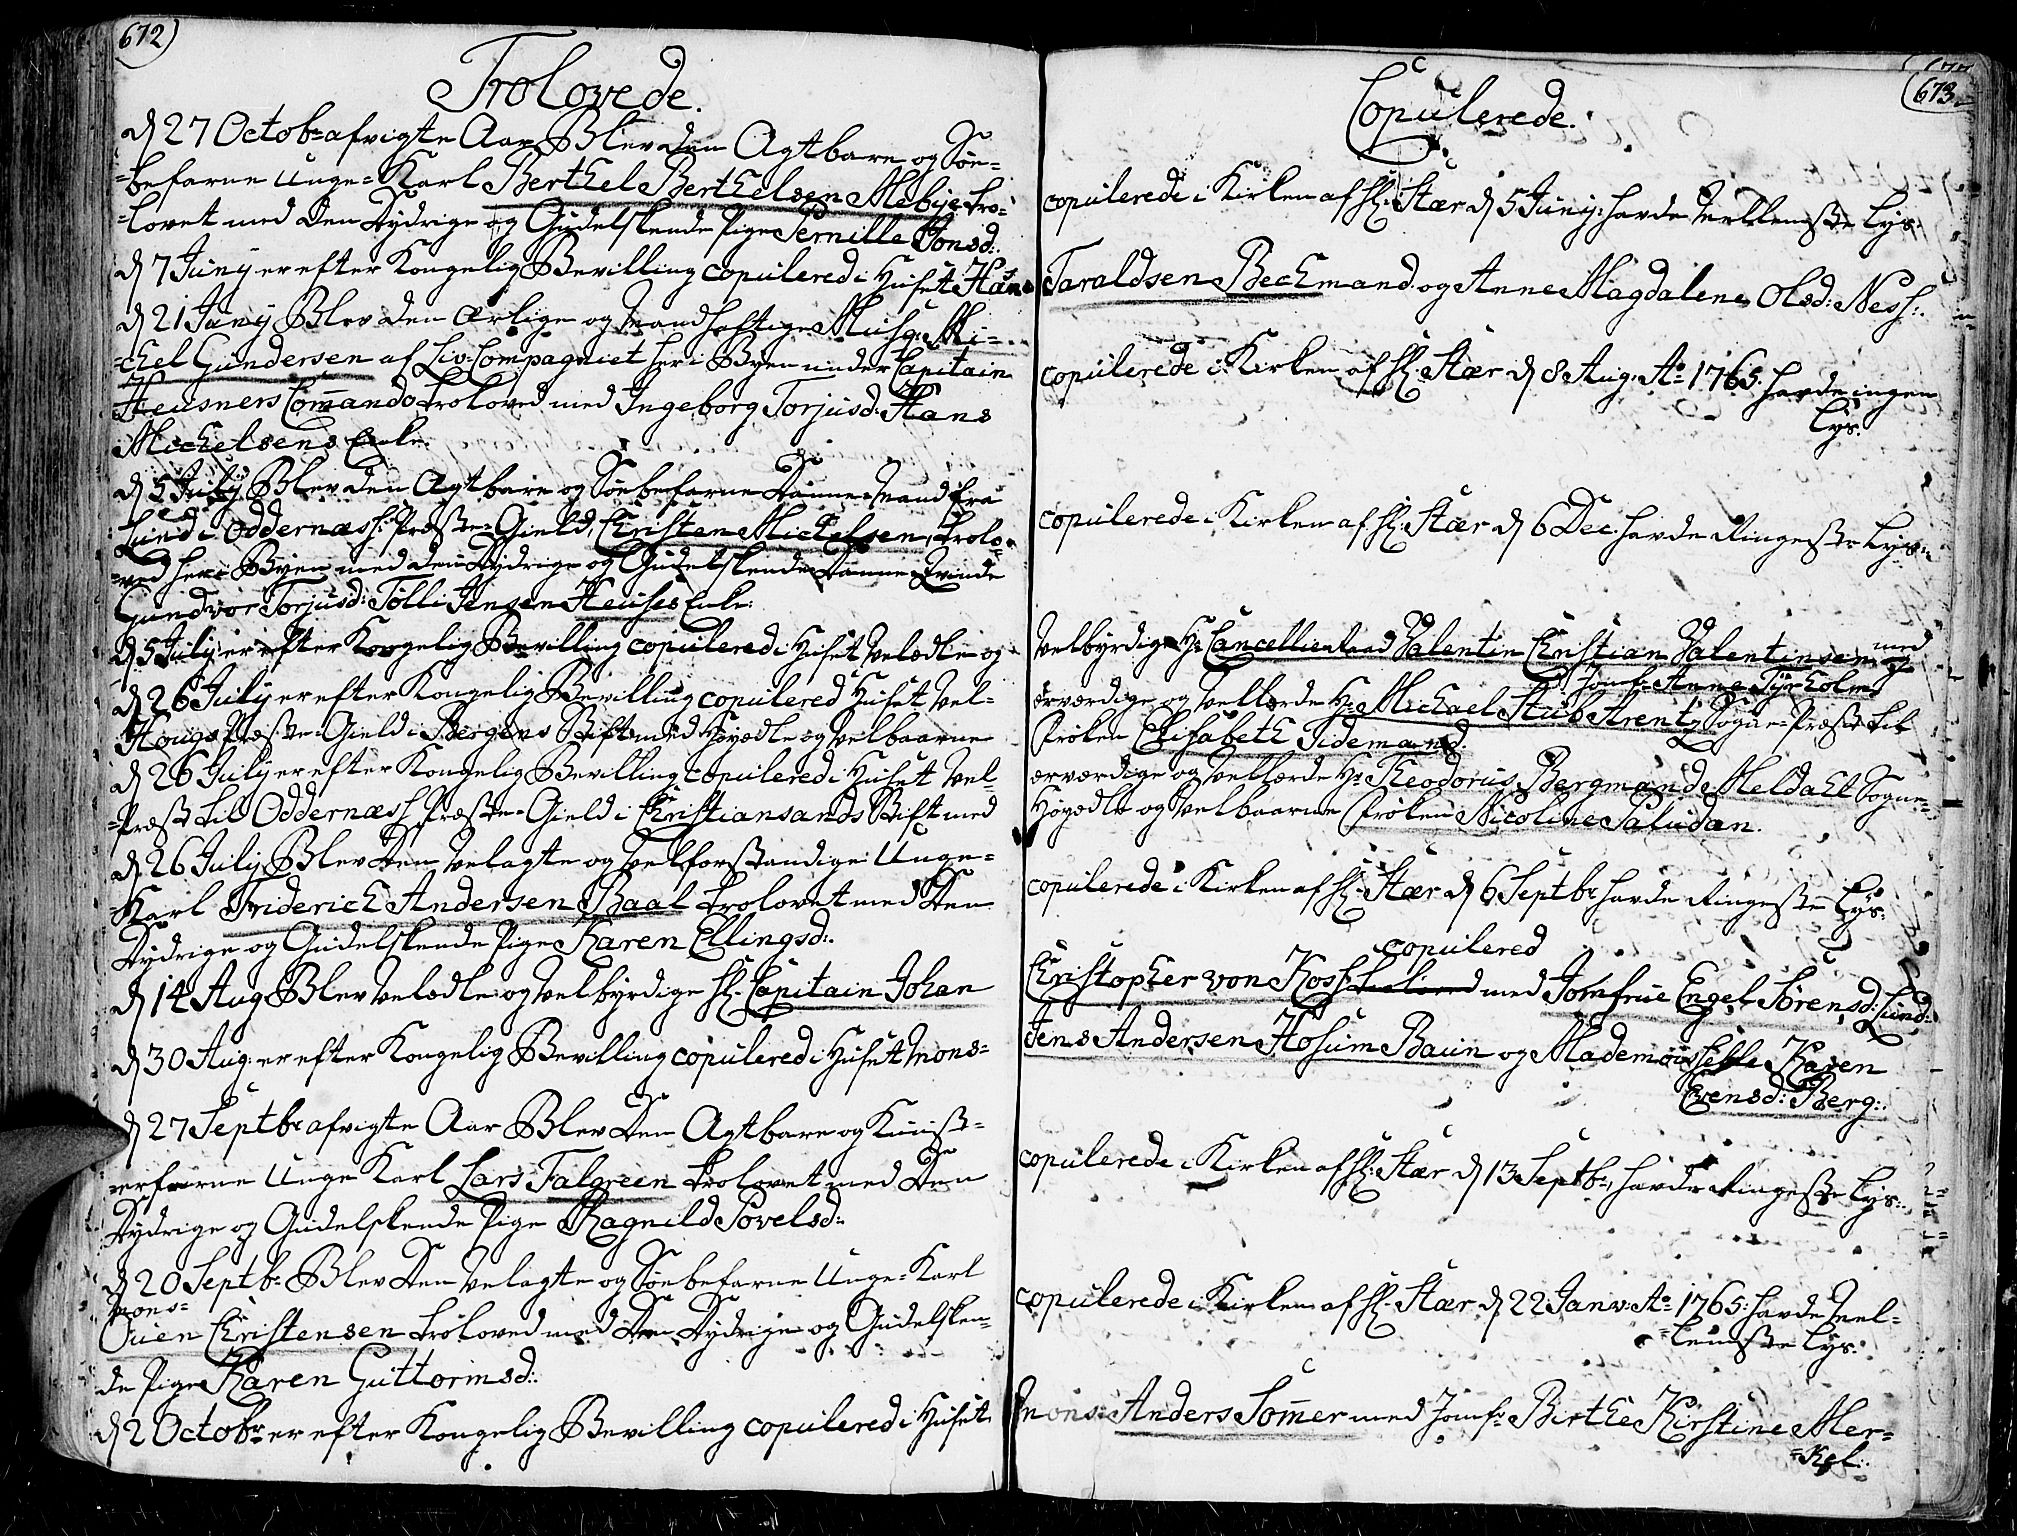 672)
Trolovede.
d 27 Octobr afvigte Aar Blev den Agtbare og Søe-
-befarne Unge-Karl Berthel Berthelsen Mebye tro-
-lovet med Den Dydrige og Gudelskende Pige Pernille Jonsd:
d 7 Junÿ er efter Kongelig Bevilling copulered i Huset Hans
d 21 Junÿ Blev den ærlige og Mandhaftige Musq: Mi-
-chel Gundersen af Liv-Compagniet her i Byen under Capitain
Heusners Comando troloved med Ingeborg Torjusd: Hans
Michelsens Enke.
d 5 Julÿ Blev den Agtbare og Søebefarne Danne-Mand fra
Lund i Oddernæss Præste-Gield, Christen Michelsen, trolo-
-ved her i Byen med den Dydrige og Gudelskende Danne-Qvinde
Gundvor Torjusd: Tølli Jensen Heuses Enke:
d 5 Julÿ er efter Kongelig Bevilling copulered i Huset Velædle og
d 26 Julÿ er efter Kongelig Bevilling copulered i Huset Vel-
Hougs Præste-Gield i Bergens Stift med Høyædle og Velbaarne
d 26 Julÿ er efter Kongelig Bevilling copulered i Huset Vel-
-Præst til Oddernæss Præste-Gield i Christiansands Stift med
d 26 Julÿ Blev Den Velagte og Velforstandige Unge-
-Karl Friderich Andersen Baal trolovet med Den
Dydrige og Gudelskende Pige Karen Ellingsd:
d 14 Aug Blev Velædle og Velbyrdige Hr: Capitain Johan
d 30 Aug: er efter Kongelig Bevilling copulered i Huset Mons-
d 27 Septbr afvigte Aar Blev Den Agtbare og Kunst-
-erfarne Unge Karl Lars Falgreen trolovet med Den
Dydrige og Gudelskende Pige Ragnild Povelsd:
d 20 Septbr Blev Den Velagte og Søebefarne Unge-Karl
Mons-
Ouen Christensen troloved med Den Dydrige og Gudelsken-
de Pige Karen Guttormsd:
d 2 Octobr er efter Kongelig Bevilling copulered i Huset
(673
Copulerede.
copulerede i Kirken af Hr: Stær d 5 Junÿ: havde Lys:
Taraldsen Bechmand og Anne Magdalene Olsd: Ness:
copulerede i Kirken af Hr: Stær d 8 Aug: Ao 1765. havde ingen
Lys.
copulerede i Kirken af Hr: Stær d 6 Dec: havde Ringeste Lys:
Velbyrdige Hr: Cancellieraad Valentin Christian Valentinsen med
Jomf: Anne Tyrholm
ærværdige og Vellærde Hr: Michael Stub Arentz Sogne-Præst til
Frøken Elisabeth Tidemand.
ærværdige og Vellærde Hr: Theodorus Bergmand Meldahl Sogne-
Høyædle og Velbaarne Frøken Nicoline Paludan.
copulerede i Kirken af Hr: Stær d 6 Septbr havde Ringeste Lys:
copulered
Christopher von Koss med Jomfrue Engel Sørensd: Lund:
Jens Andersen Hosum Baun og Mademoiselle Karen
Evensd: Berg:
copulerede i Kirken af Hr: Stær d 13 Septbr, havde Ringeste Lys:
copulerede i Kirken af Hr: Stær d 22 Janv: Ao 1765: havde Vel-
Lys:
Mons: Anders Sommer med Jomf: Birthe Kirstine Mer-
-kel: